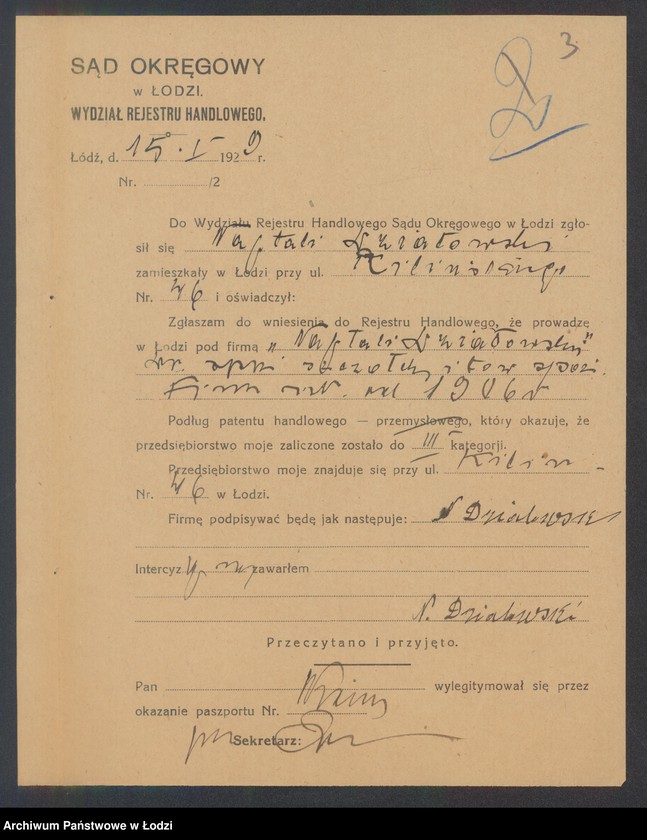 3
2
SĄD OKRĘGOWY
w ŁODZI.
WYDZIAŁ REJESTRU HANDLOWEGO.
Łódź, d. 15 . I 1929 r.
Nr. /2
Do Wydziału Rejestru Handlowego Sądu Okręgowego w Łodzi zgło-
sił się Naftali Działowski
zamieszkały w Łodzi przy ul. Kilińskiego
Nr. 46 i oświadczył:
Zgłaszam do wniesienia do Rejestru Handlowego, że prowadzę
w Łodzi pod firmą „Naftali Działowski"
szczotek i tow
Firma od 1906 r
Podług patentu handlowego — przemysłowego, który okazuje, że
przedsiębiorstwo moje zaliczone zostało do III kategorji.
Przedsiębiorstwo moje znajduje się przy ul. Kilin -
Nr. 46 w Łodzi.
Firmę podpisywać będę jak następuje: N Dzialowski
Intercyzy nie zawarłem
N. Dzialowski
Przeczytano i przyjęto.
Pan wylegitymował się przez
okazanie paszportu Nr.
Sekretarz:
Archiwum Państwowe w Łodzi